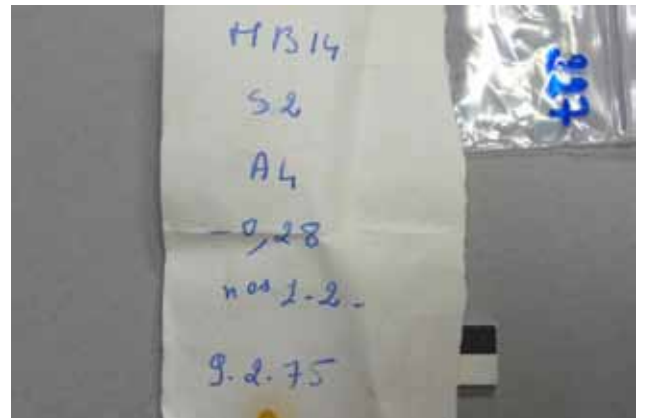 HB14
S2
A4
-0,28
nos 1-2-
9.2.75